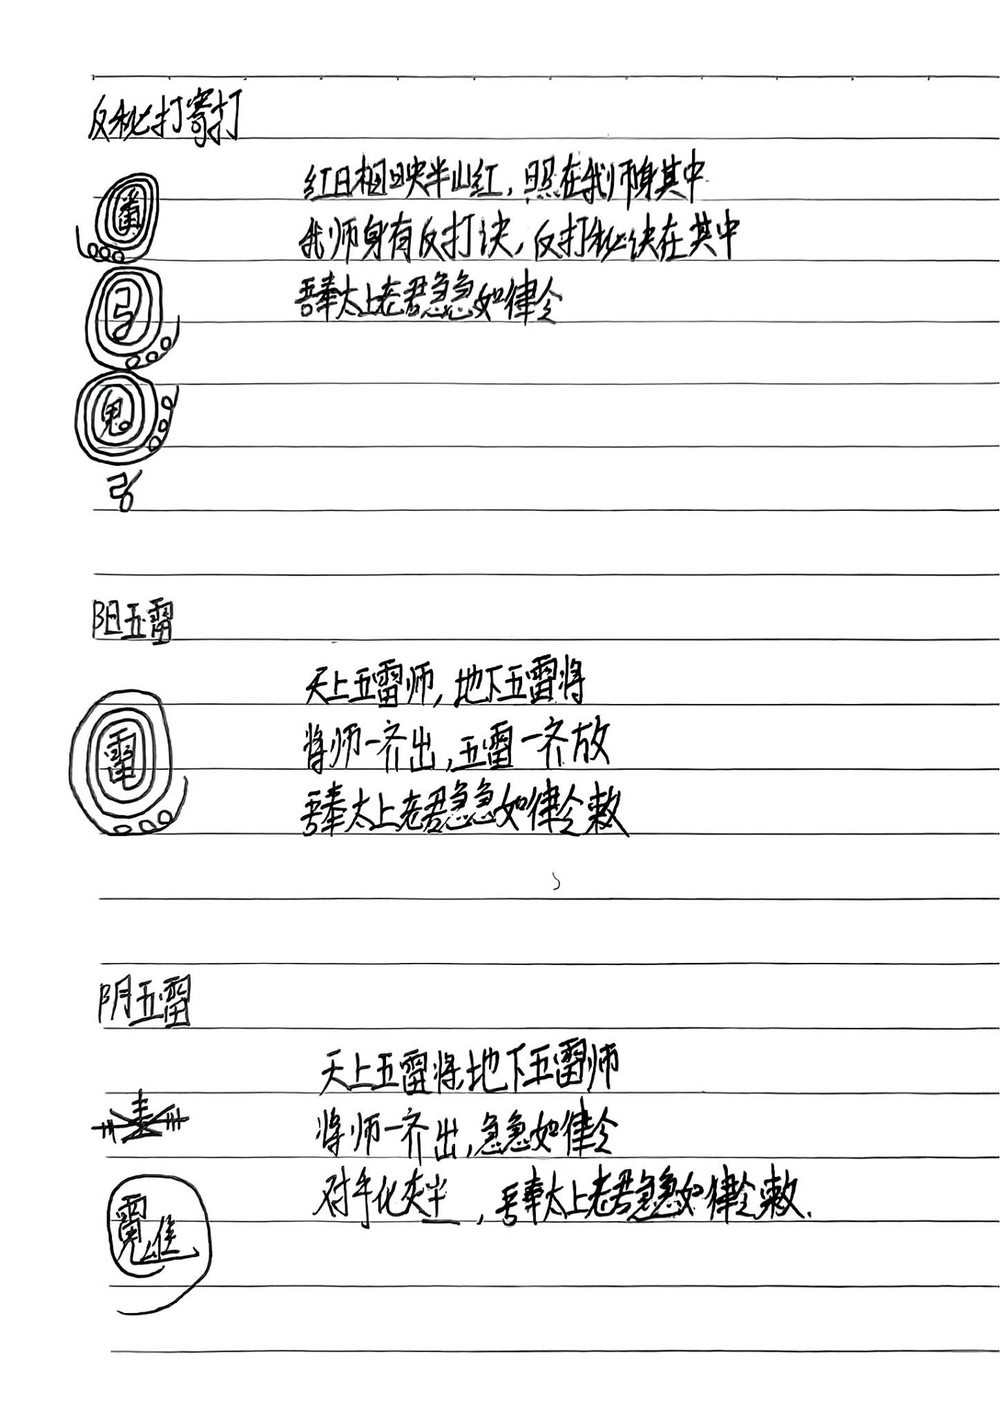 反秘打寄打
红日相映半山红，照在我师身其中
我师身有反打诀，反打秘诀在其中
吾奉太上老君急急如律令
鬼
弓
阳五雷
天上五雷师，地下五雷将
将师一齐出，五雷一齐放
雷
吾奉太上老君急急如律令敕
阴五雷
天上五雷将，地下五雷师
将师一齐出，急急如律令
对手化灰尘，吾奉太上老君急急如律令敕.